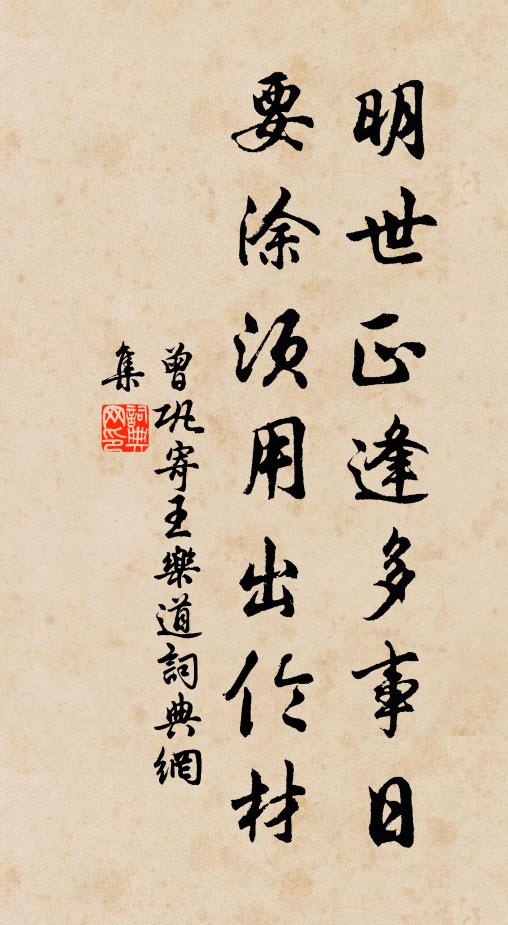 明世正逢多事日
要涂须用出伦材
曾巩寄王樂道詞典網
集
詞典网印